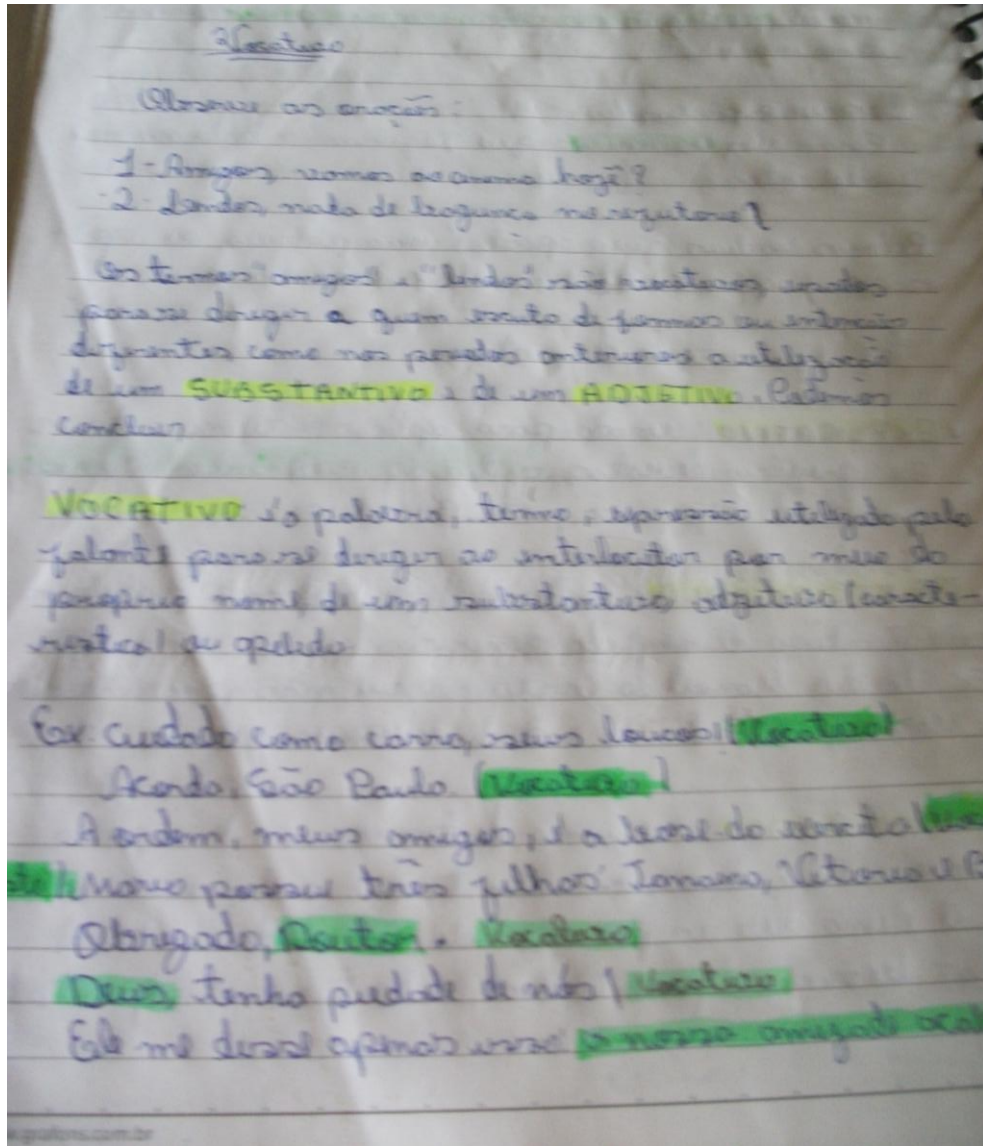 Vocativo
Observe as orações:
1- Amigos, vamos ao cinema hoje?
2- Lindos, nada de bagunça no refeitório!
Os termos "amigos" e "lindos" são vocativos, usados
para se dirigir a quem escuta de formas ou intenção
diferentes como nos períodos anteriores a utilização
de um SUBSTANTIVO e de um ADJETIVO. Podemos
concluir
VOCATIVO é a palavra, termo, expressão utilizado pelo
falante para se dirigir ao interlocutor por meio do
próprio nome, de um substantivo, adjetivo (caracte-
rística) ou apelido
Ex: Cuidado como carro, seus loucos! (Vocativo)
Acorda, São Paulo. (Vocativo)
A ordem, meus amigos, é a base do
Mario possui três filhos: Vitoria e B
Obrigado, Doutor. Vocativo
Deus, tenha piedade de nós! Vocativo
Ele me disse apenas isso: a nossa amizade aca